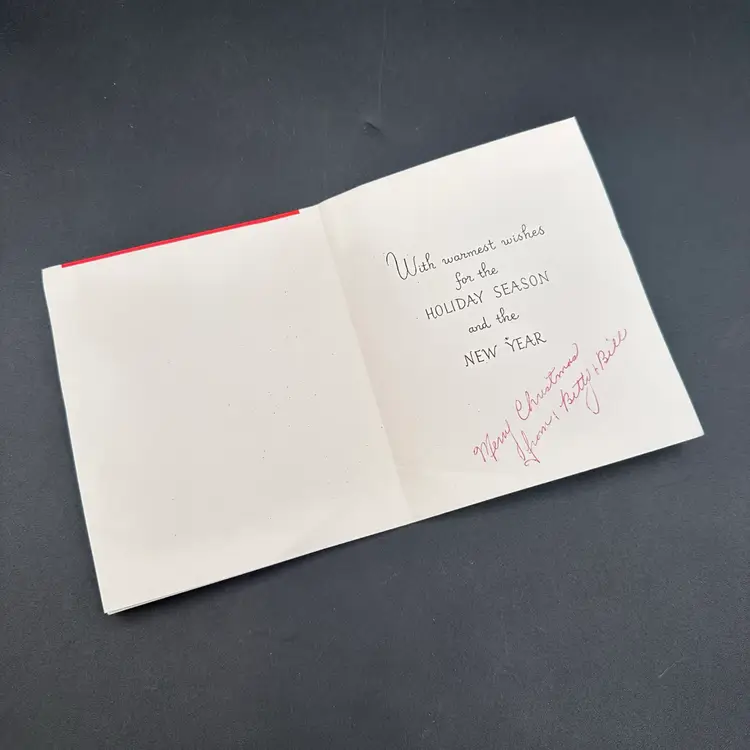 With warmest wishes
for the
HOLIDAY SEASON
and the
NEW YEAR
Merry Christmas
from, Betty + Bill